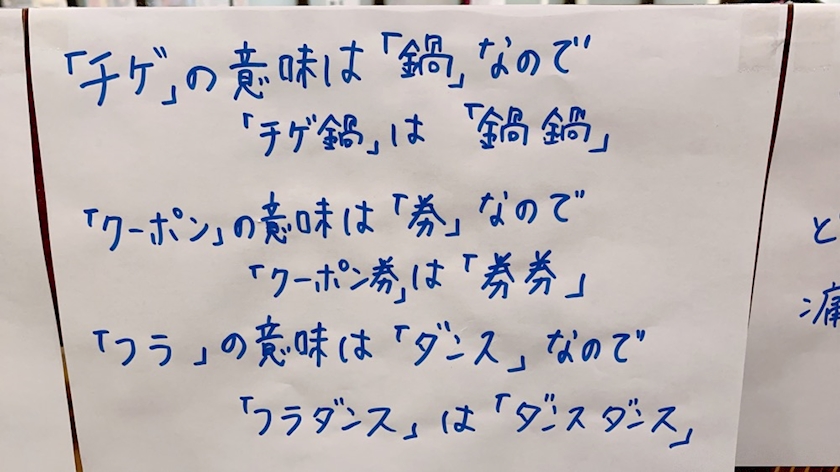 「チゲ」の意味は「鍋」なので
「チゲ鍋」は 「鍋鍋」
「クーポン」の意味は「券」なので
「クーポン券」は「券券」
「フラ」の意味は「ダンス」なので
「フラダンス」は「ダンスダンス」
と
痛